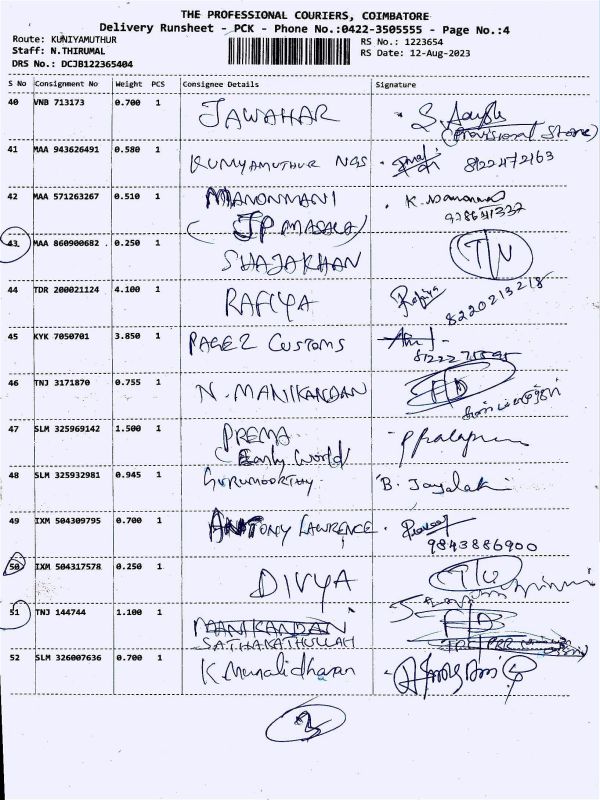 THE PROFESSIONAL COURIERS, COIMBATORE
Delivery Runsheet - PCK - Phone No.:0422-3505555 - Page No.:4
Route: KUNIYAMUTHUR
RS No.: 1223654
Staff: N.THIRUMAL
RS Date: 12-Aug-2023
DRS No.: DCJB122365404
S No Consignment No Weight PCS Consignee Details Signature
40 VNB 713173 0.700 1 JAWAHAR
(Provisional Store)
41 MAA 943626491 0.580 1 KUNIYAMUTHUR NGS 8122472163
42 MAA 571263267 0.510 1 MANONMANI K.
(JP MASALA)
43 MAA 860900682 0.250 1 SHAJAKHAN T/N
44 TDR 200021124 4.100 1 RAFIYA Rafiya
8220213218
45 KYK 7050701 3.850 1 PAGE2 CUSTOMS
46 TNJ 3171870 0.755 1 N. MANIKANDAN
47 SLM 325969142 1.500 1 PREMA
(Early World)
48 SLM 325932981 0.945 1 GURUMOORTHY B.
49 IXM 504309795 0.700 1 ANTONY LAWRENCE
9843886900
50 IXM 504317578 0.250 1 DIVYA
51 TNJ 144744 1.100 1 MANIKANDAN
SATHAKATHULLAH
52 SLM 326007636 0.700 1 K. Muralidharan